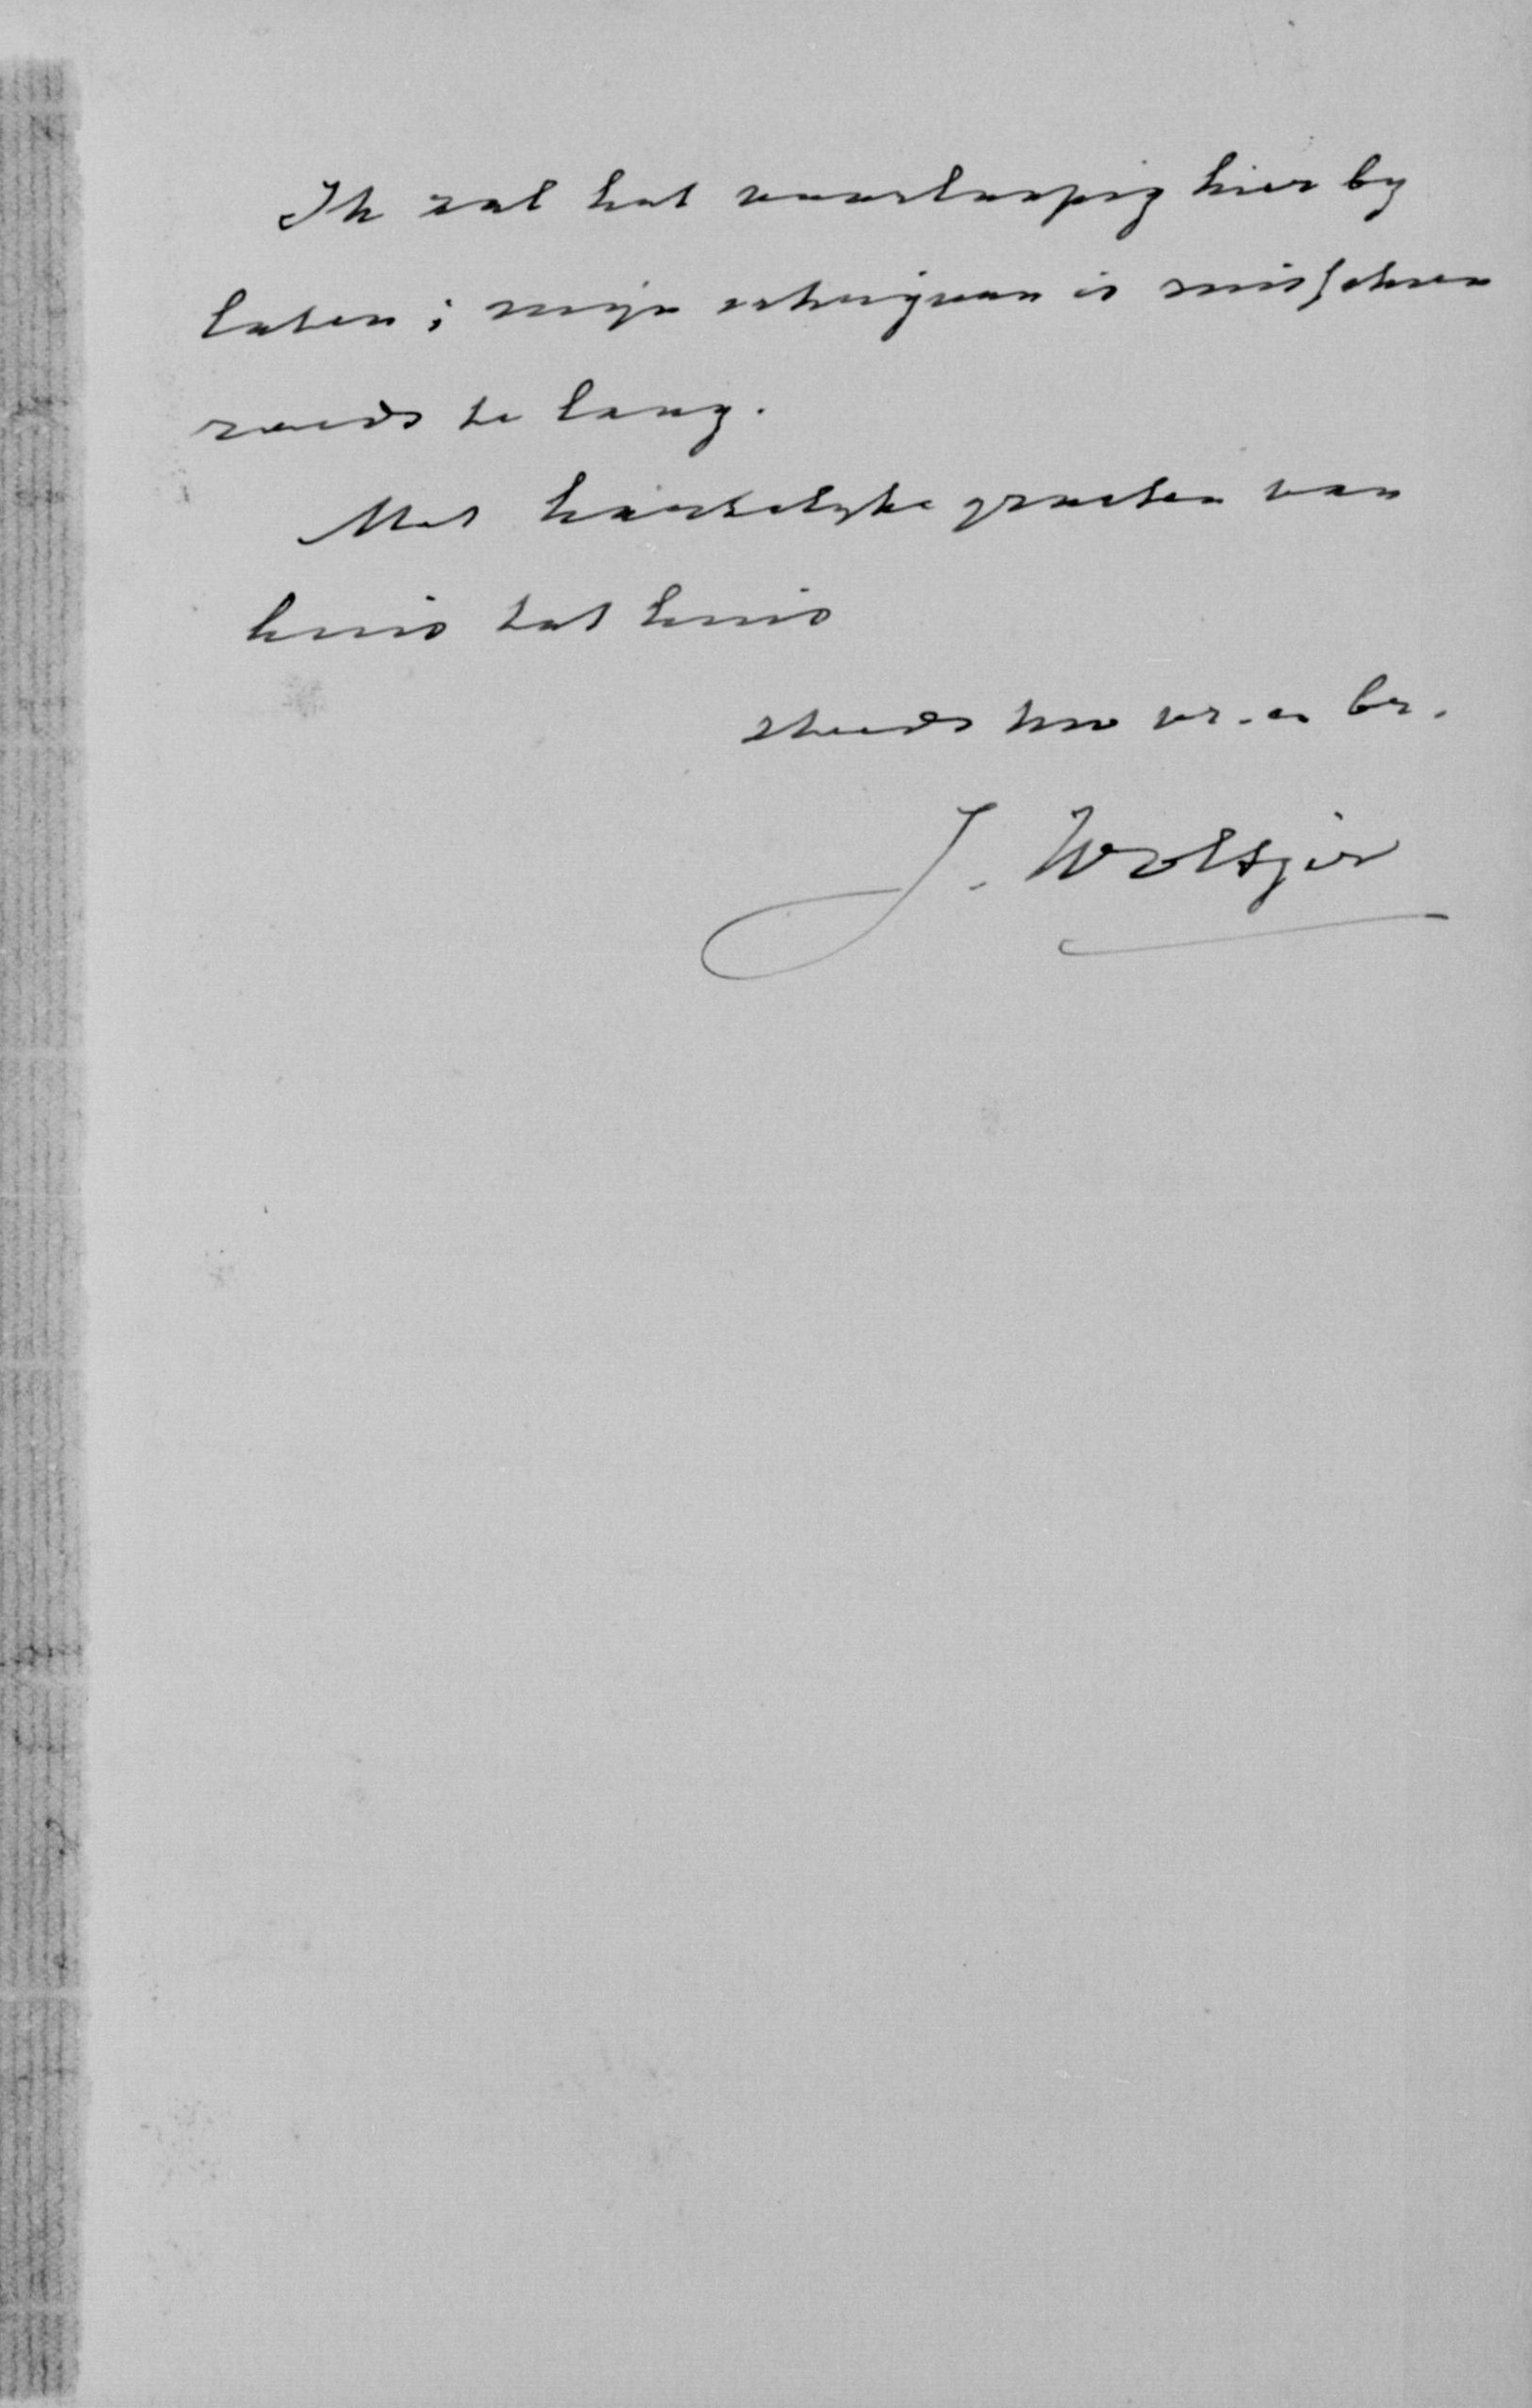 Ik zal het voorloopig hier by
laten; mijn schrijven is misschien
reeds te lang.
Met hartelyke groeten van
huis tot huis
steeds uw vr. en br.
J. Woltjer